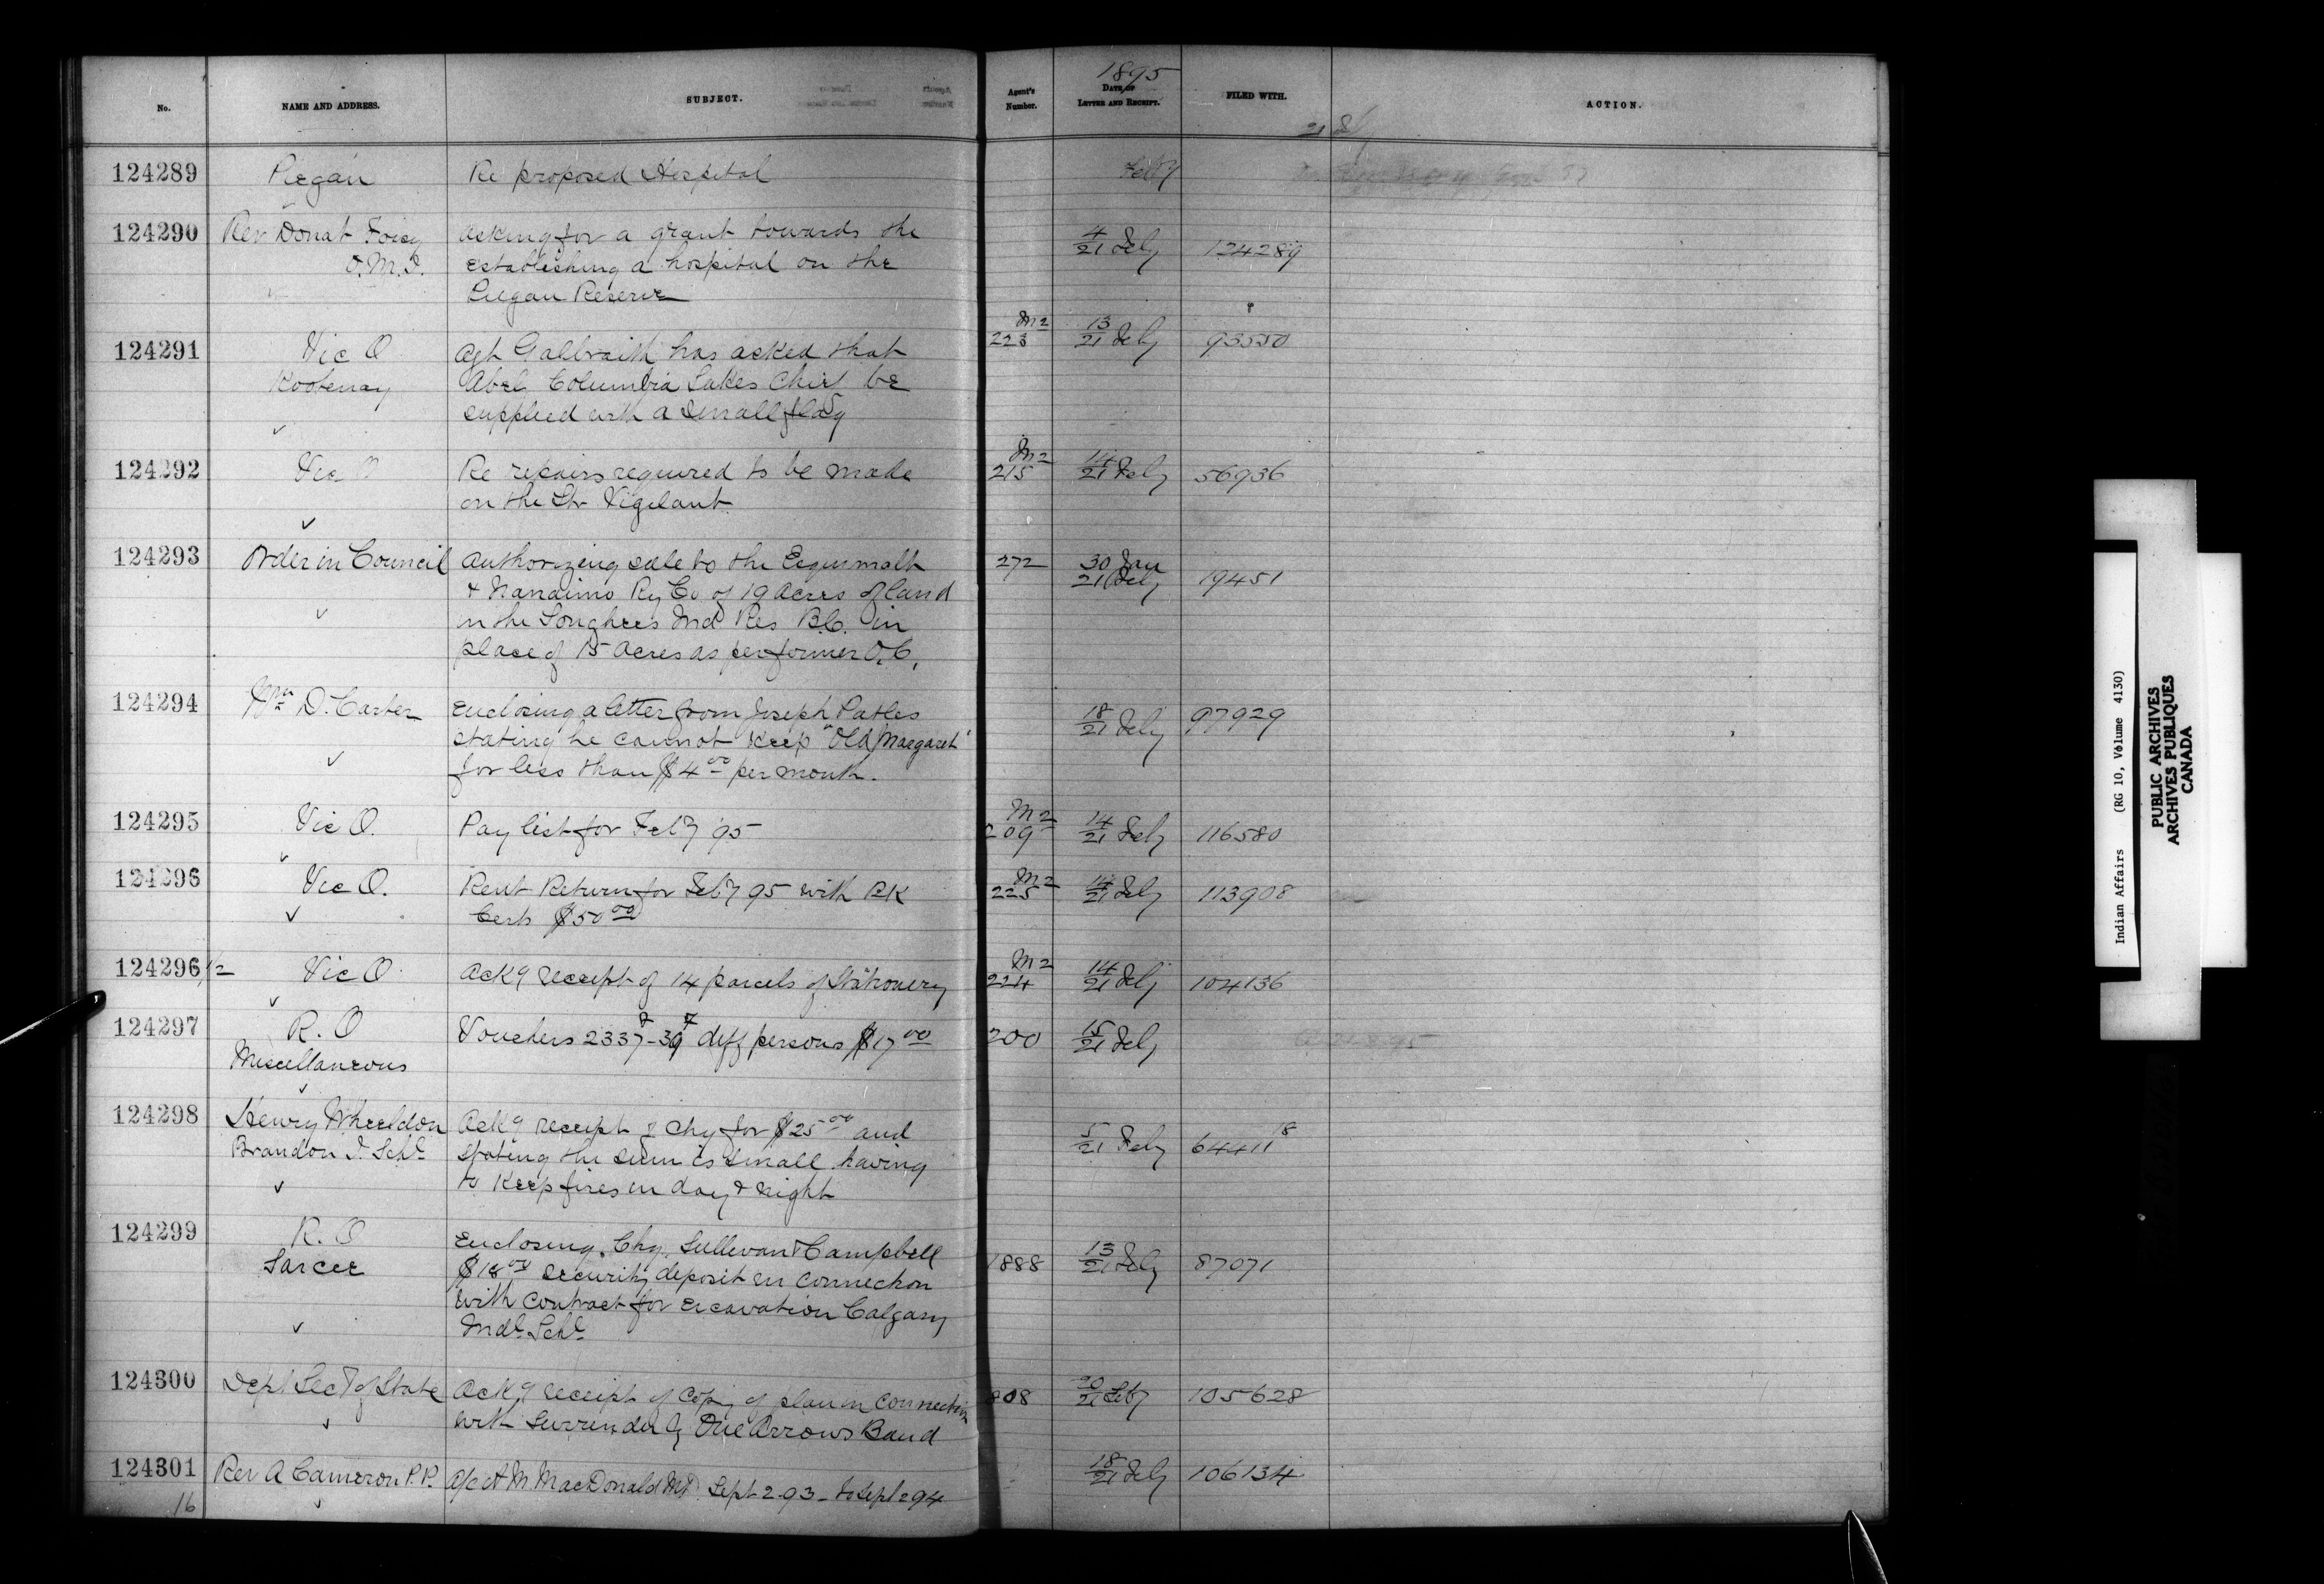 1895
No.
NAME AND ADDRESS.
SUBJECT.
Agent's Number.
DATE OF LETTER AND RECEIPT.
FILED WITH.
ACTION.
21 Feby
124289 Piegan Re proposed Hospital Feby
124290 Rev Donat Foisy asking for a grant towards the 4/21 Feby 124289
O.M.I. establishing a hospital on the
Piegan Reserve
124291 Vic O Agt Galbraith has asked that M2 223 13/21 Feby 93550
Kootenay Abel Columbia Lakes Chief be
supplied with a small flag
124292 Vic O Re repairs required to be made M2 215 14/21 Feby 56936
on the Str Vigilant
124293 Order in Council Authorizing sale to the Esquimalt 272 30 Jan 21 Feby 19451
& Nanaimo Ry Co of 19 acres of land
in the Songhees Ind Res B.C. in
place of 15 acres as per former O.C.
124294 Wm D. Carter Enclosing a letter from Joseph Patles 18/21 Feby 97929
stating he cannot keep "Old Margaret"
for less than $4.00 per month.
124295 Vic O. Pay list for Feby 95 M2 209 14/21 Feby 116580
124296 Vic O. Rent Return for Feby 95 with BK M2 225 14/21 Feby 113908
Certs $50.00
124296 1/2 Vic O Ackg receipt of 14 parcels of Stationery M2 224 14/21 Feby 104136
124297 R. O Vouchers 2337-39 diff persons $17.00 200 15/21 Feby
Miscellaneous
124298 Henry Wheeldon Ackg receipt of chq for $25.00 and 5/21 Feby 64411 18
Brandon I. Schl stating the sum is small having
to keep fires in day & night
124299 R. O Enclosing Chq. Sullivan & Campbell 1888 13/21 Feby 87071
Sarcee $18.00 security deposit in connection
with contract for excavation Calgary
Indl Schl
124300 Dept Secy of State Ackg receipt of copy of plan in connection 808 20/21 Feby 105628
with surrender by One Arrows Band
124301 Rev A Cameron P.P. a/c A M MacDonald MD Sept 2 93 - to Sept 2 94 18/21 Feby 106134
16
Indian Affairs (RG 10, Volume 4130)
PUBLIC ARCHIVES
ARCHIVES PUBLIQUES
CANADA